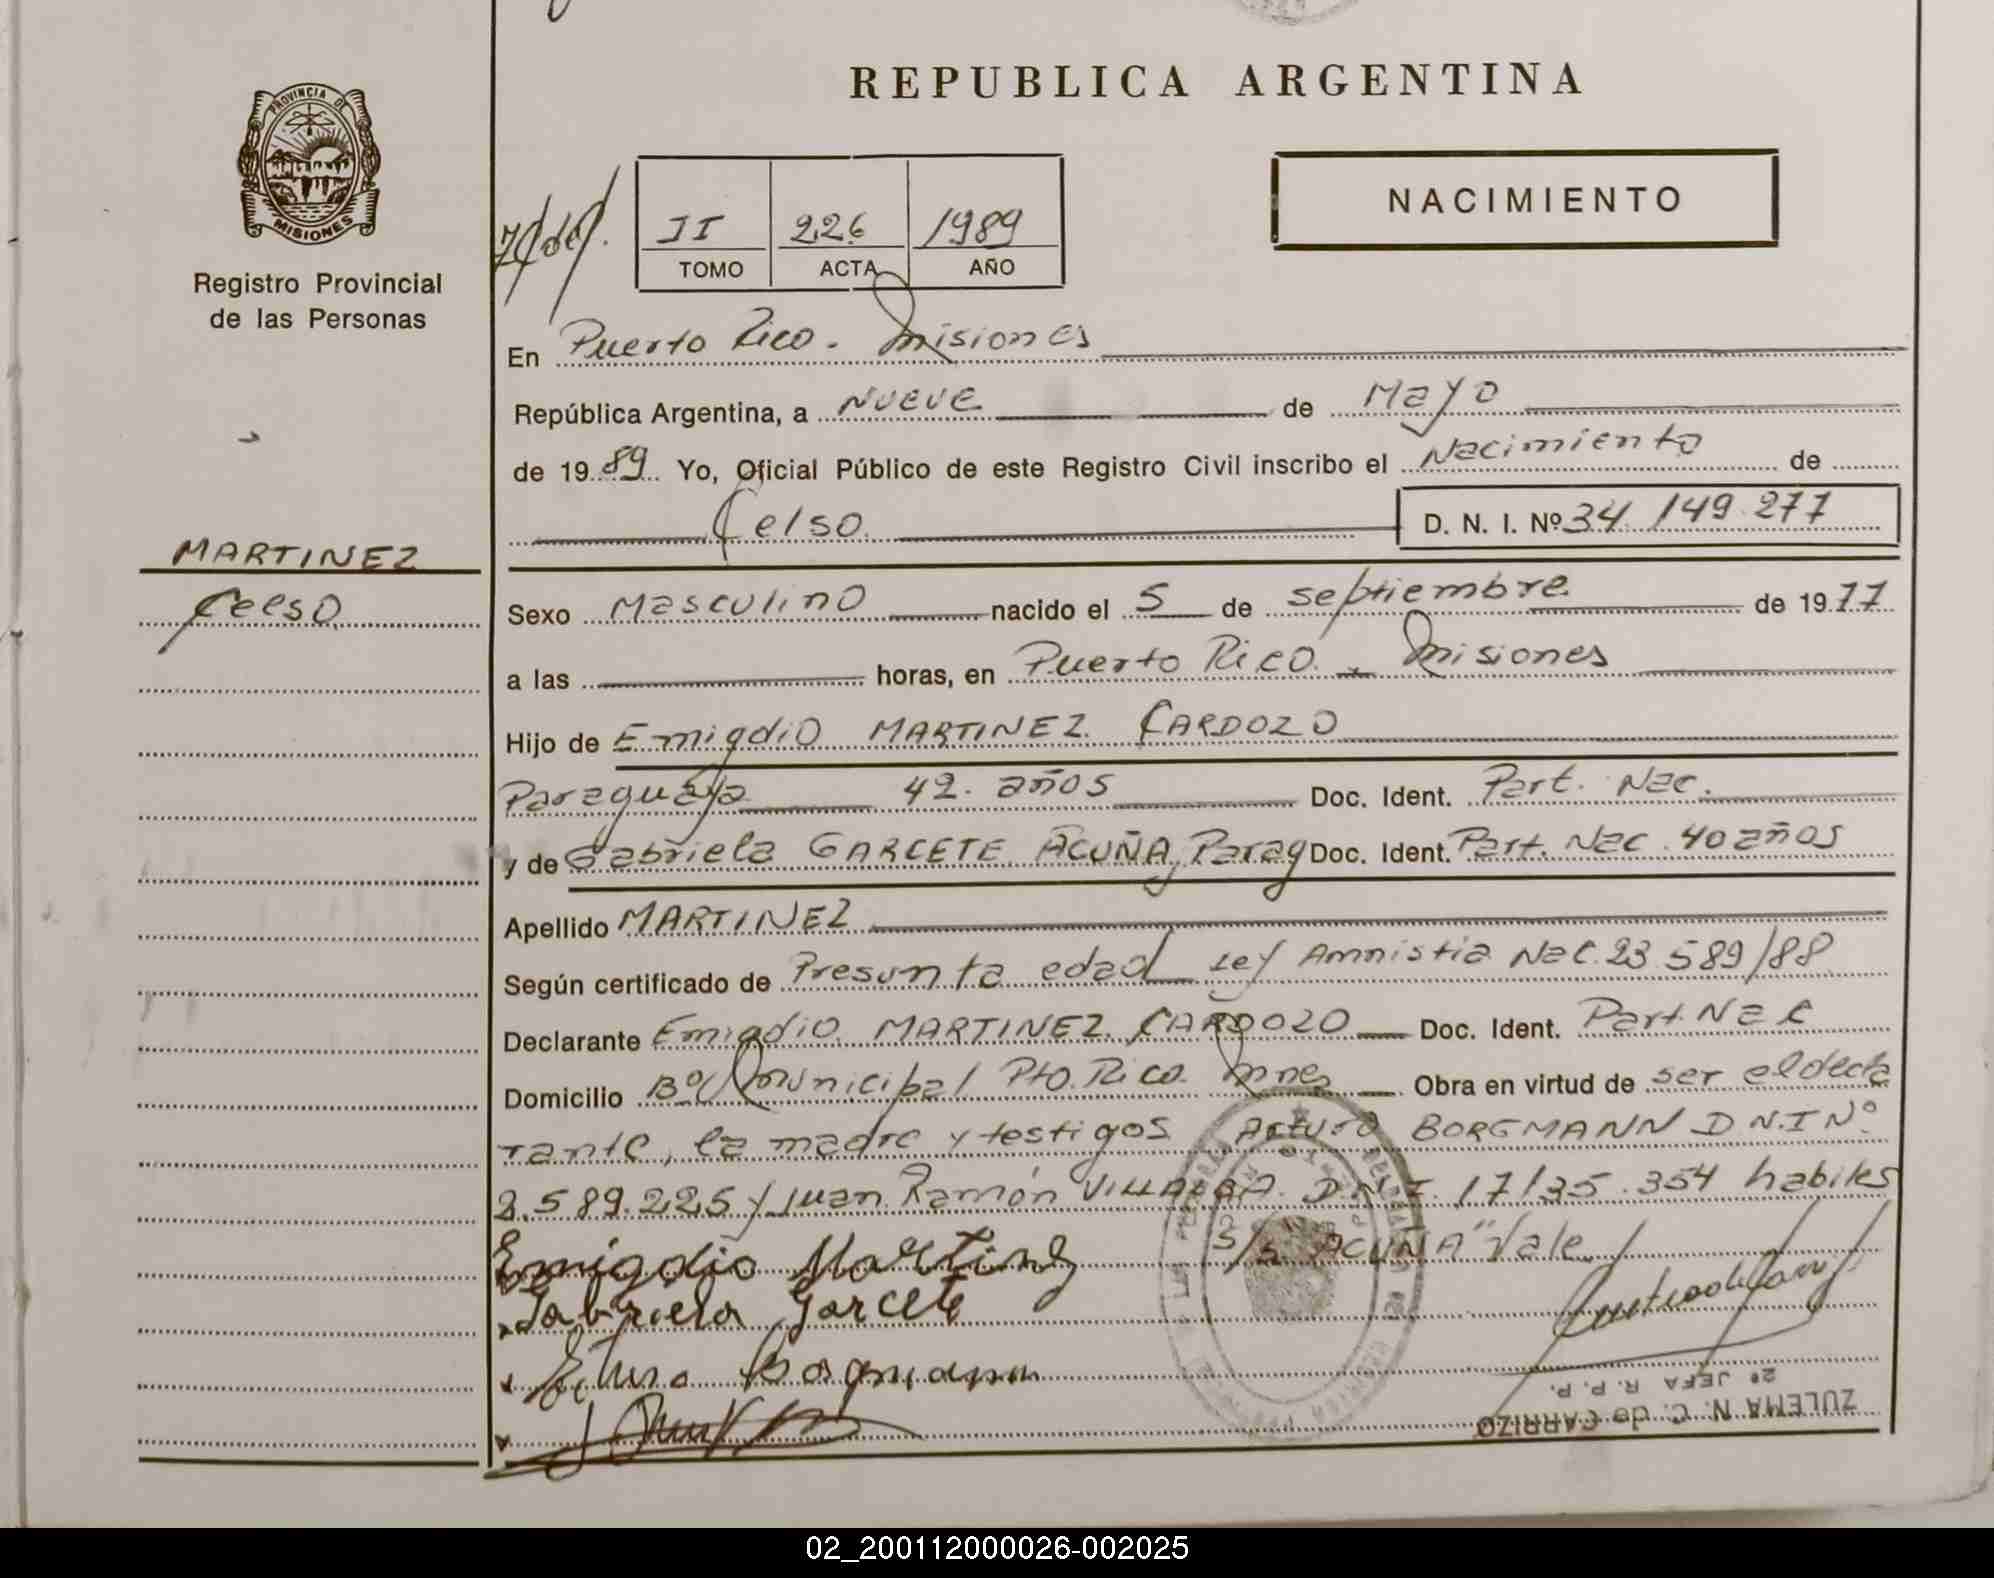 REPUBLICA ARGENTINA
PROVINCIA DE
MISIONES
Registro Provincial
de las Personas
NACIMIENTO
II 226 1989
TOMO ACTA AÑO
En Puerto Rico. Misiones
República Argentina, a Nueve de Mayo
de 1989 Yo, Oficial Público de este Registro Civil inscribo el Nacimiento de
Celso D. N. I. Nº 34.149.277
MARTINEZ
Celso
Sexo Masculino nacido el 5 de septiembre de 1977
a las horas, en Puerto Rico. - Misiones
Hijo de Emigdio MARTINEZ CARDOZO
Paraguaya 42. años Doc. Ident. Part. Nac.
y de Gabriela GARCETE ACUÑA, Parag Doc. Ident. Part. Nac. 40 años
Apellido MARTINEZ
Según certificado de Presunta edad Ley Amnistia Nac. 23.589/88
Declarante Emigdio MARTINEZ CARDOZO Doc. Ident. Part. Nac
Domicilio Bº Municipal Pto. Rico. Mnes Obra en virtud de ser el decla
rante, la madre y testigos Arturo BORGMANN D.N.I Nº
2.589.225 y Juan Ramón VILLALBA. D.N.I. 17135.354 habiles
S/r ACUÑA" Vale
Emigdio Martinez
Gabriela Garcete
ZULEMA N. C. de CARRIZO
2º JEFA R. P. P.
02_200112000026-002025